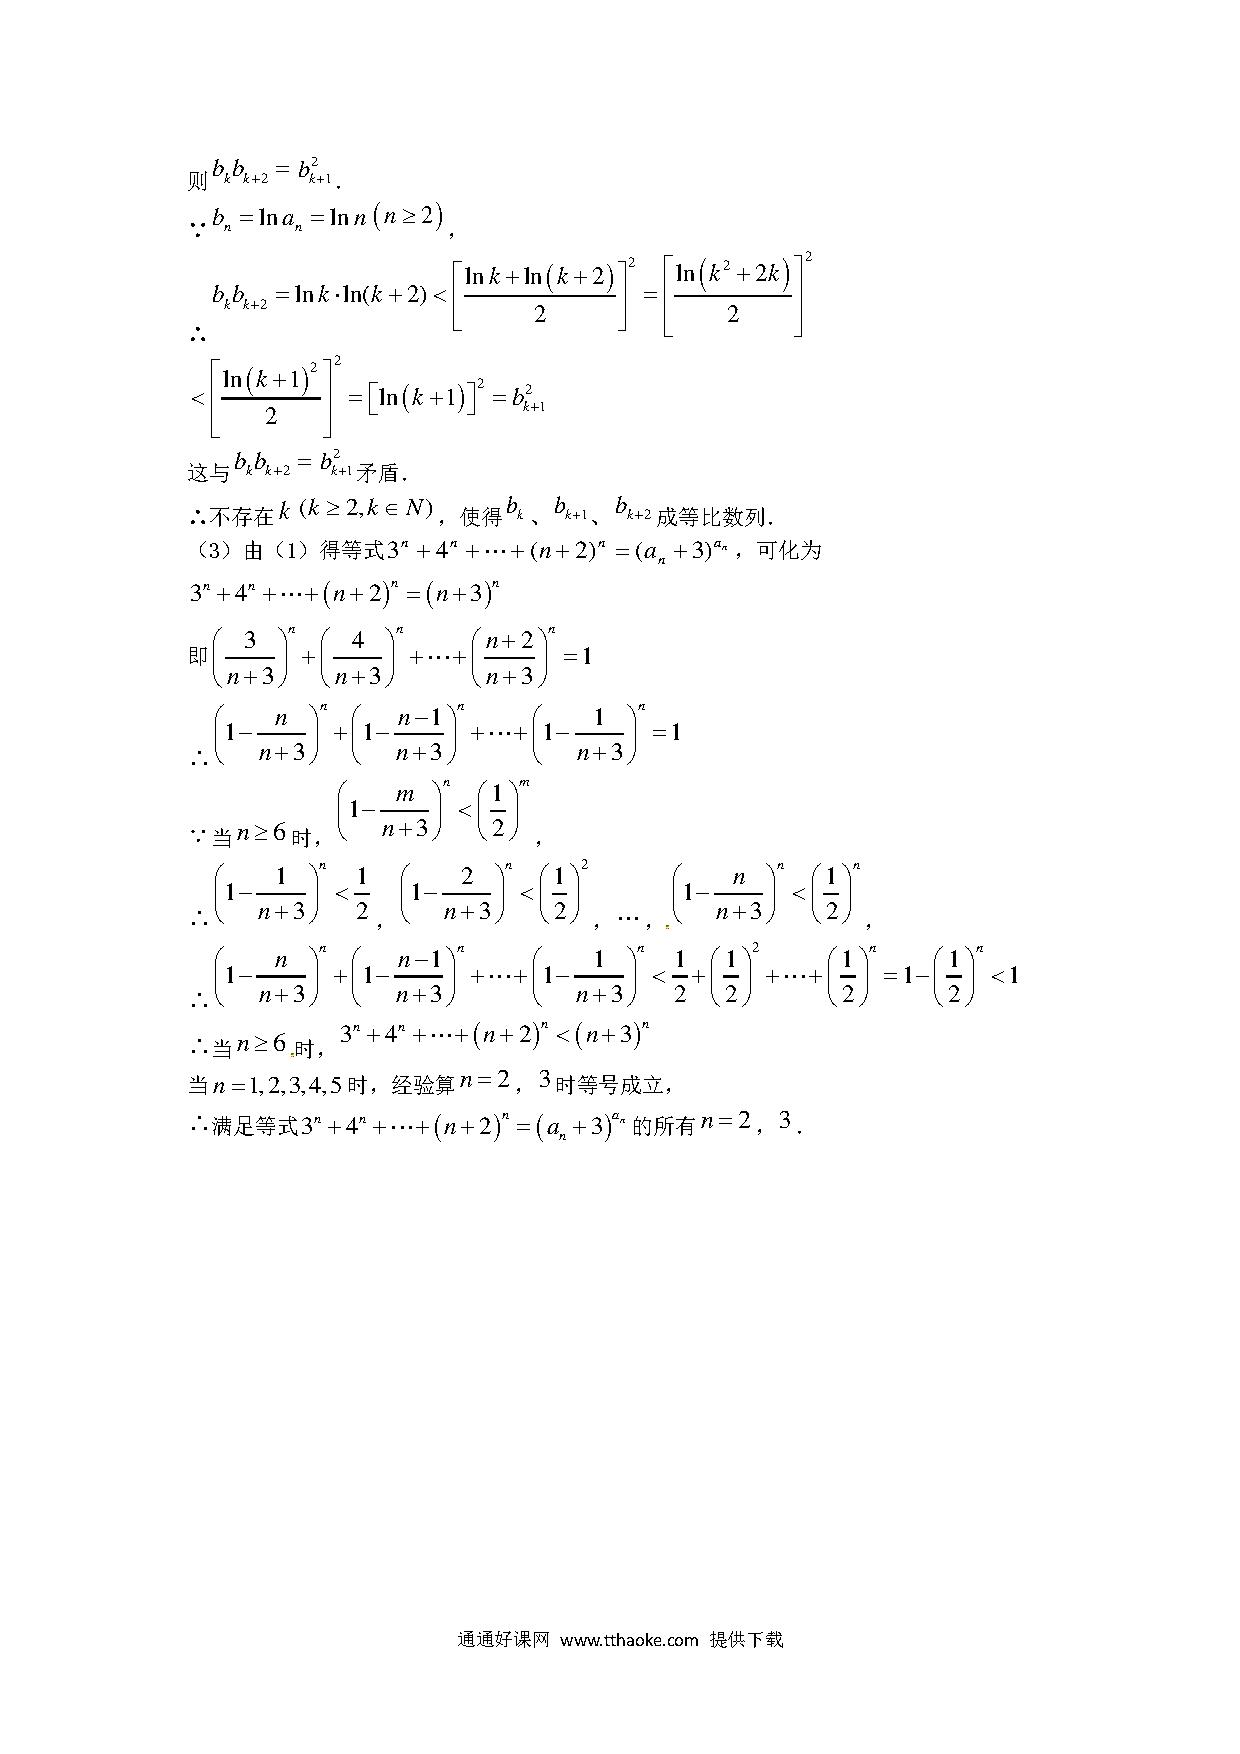 则 $b_k b_{k+2} = b_{k+1}^2$.
∵ $b_n = \ln a_n = \ln n \left(n \geq 2\right)$,
∴ $b_k b_{k+2} = \ln k \cdot \ln(k+2) < \left[\frac{\ln k + \ln\left(k+2\right)}{2}\right]^2 = \left[\frac{\ln\left(k^2+2k\right)}{2}\right]^2$
$< \left[\frac{\ln\left(k+1\right)^2}{2}\right]^2 = \left[\ln\left(k+1\right)\right]^2 = b_{k+1}^2$
这与 $b_k b_{k+2} = b_{k+1}^2$ 矛盾.
∴不存在 $k$ $(k \geq 2, k \in N)$，使得 $b_k$、$b_{k+1}$、$b_{k+2}$ 成等比数列.
（3）由（1）得等式 $3^n + 4^n + \cdots + (n+2)^n = (a_n+3)^{a_n}$，可化为
$3^n + 4^n + \cdots + \left(n+2\right)^n = \left(n+3\right)^n$
即 $\left(\frac{3}{n+3}\right)^n + \left(\frac{4}{n+3}\right)^n + \cdots + \left(\frac{n+2}{n+3}\right)^n = 1$
∴ $\left(1-\frac{n}{n+3}\right)^n + \left(1-\frac{n-1}{n+3}\right)^n + \cdots + \left(1-\frac{1}{n+3}\right)^n = 1$
∵当 $n \geq 6$ 时，$\left(1-\frac{m}{n+3}\right)^n < \left(\frac{1}{2}\right)^m$，
∴ $\left(1-\frac{1}{n+3}\right)^n < \frac{1}{2}$，$\left(1-\frac{2}{n+3}\right)^n < \left(\frac{1}{2}\right)^2$，…，$\left(1-\frac{n}{n+3}\right)^n < \left(\frac{1}{2}\right)^n$，
∴ $\left(1-\frac{n}{n+3}\right)^n + \left(1-\frac{n-1}{n+3}\right)^n + \cdots + \left(1-\frac{1}{n+3}\right)^n < \frac{1}{2} + \left(\frac{1}{2}\right)^2 + \cdots + \left(\frac{1}{2}\right)^n = 1 - \left(\frac{1}{2}\right)^n < 1$
∴当 $n \geq 6$ 时，$3^n + 4^n + \cdots + \left(n+2\right)^n < \left(n+3\right)^n$
当 $n = 1,2,3,4,5$ 时，经验算 $n = 2$，$3$ 时等号成立，
∴满足等式 $3^n + 4^n + \cdots + \left(n+2\right)^n = \left(a_n+3\right)^{a_n}$ 的所有 $n = 2$，$3$.
通通好课网 www.tthaoke.com 提供下载